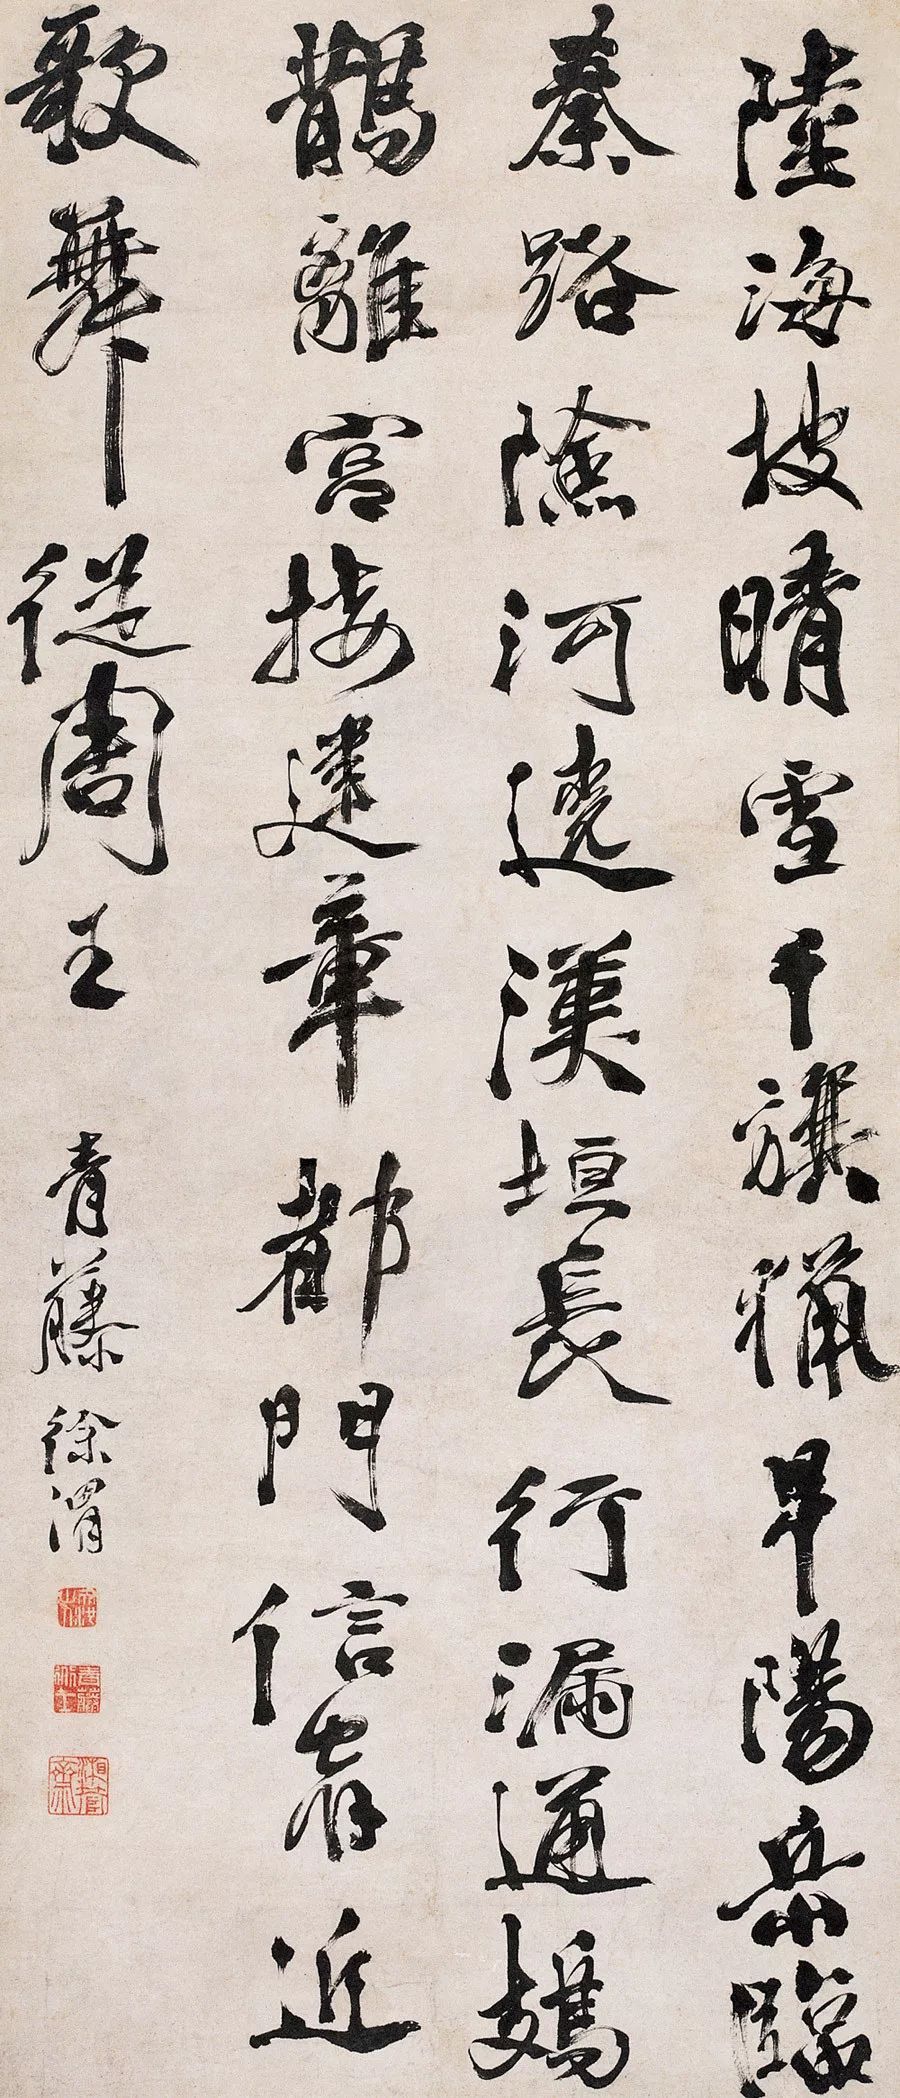 陸海披晴雪千旗獵早陽岳臨
秦路險河遶漢垣長行漏通鳷
鵲離宮接建章都門信宿近
歌舞從周王
青藤徐渭
湘管齋